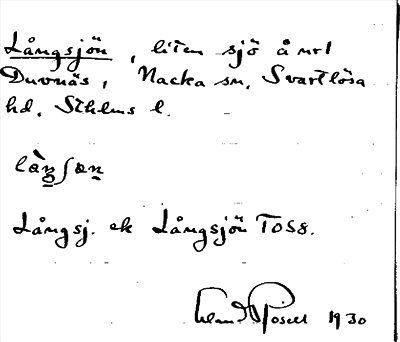 Långsjön, liten sjö å nrl
Duvnäs, Nacka sn, Svartlösa
hd, Sthlms l.
Långsj. ek Långsjön TOS8.
1930